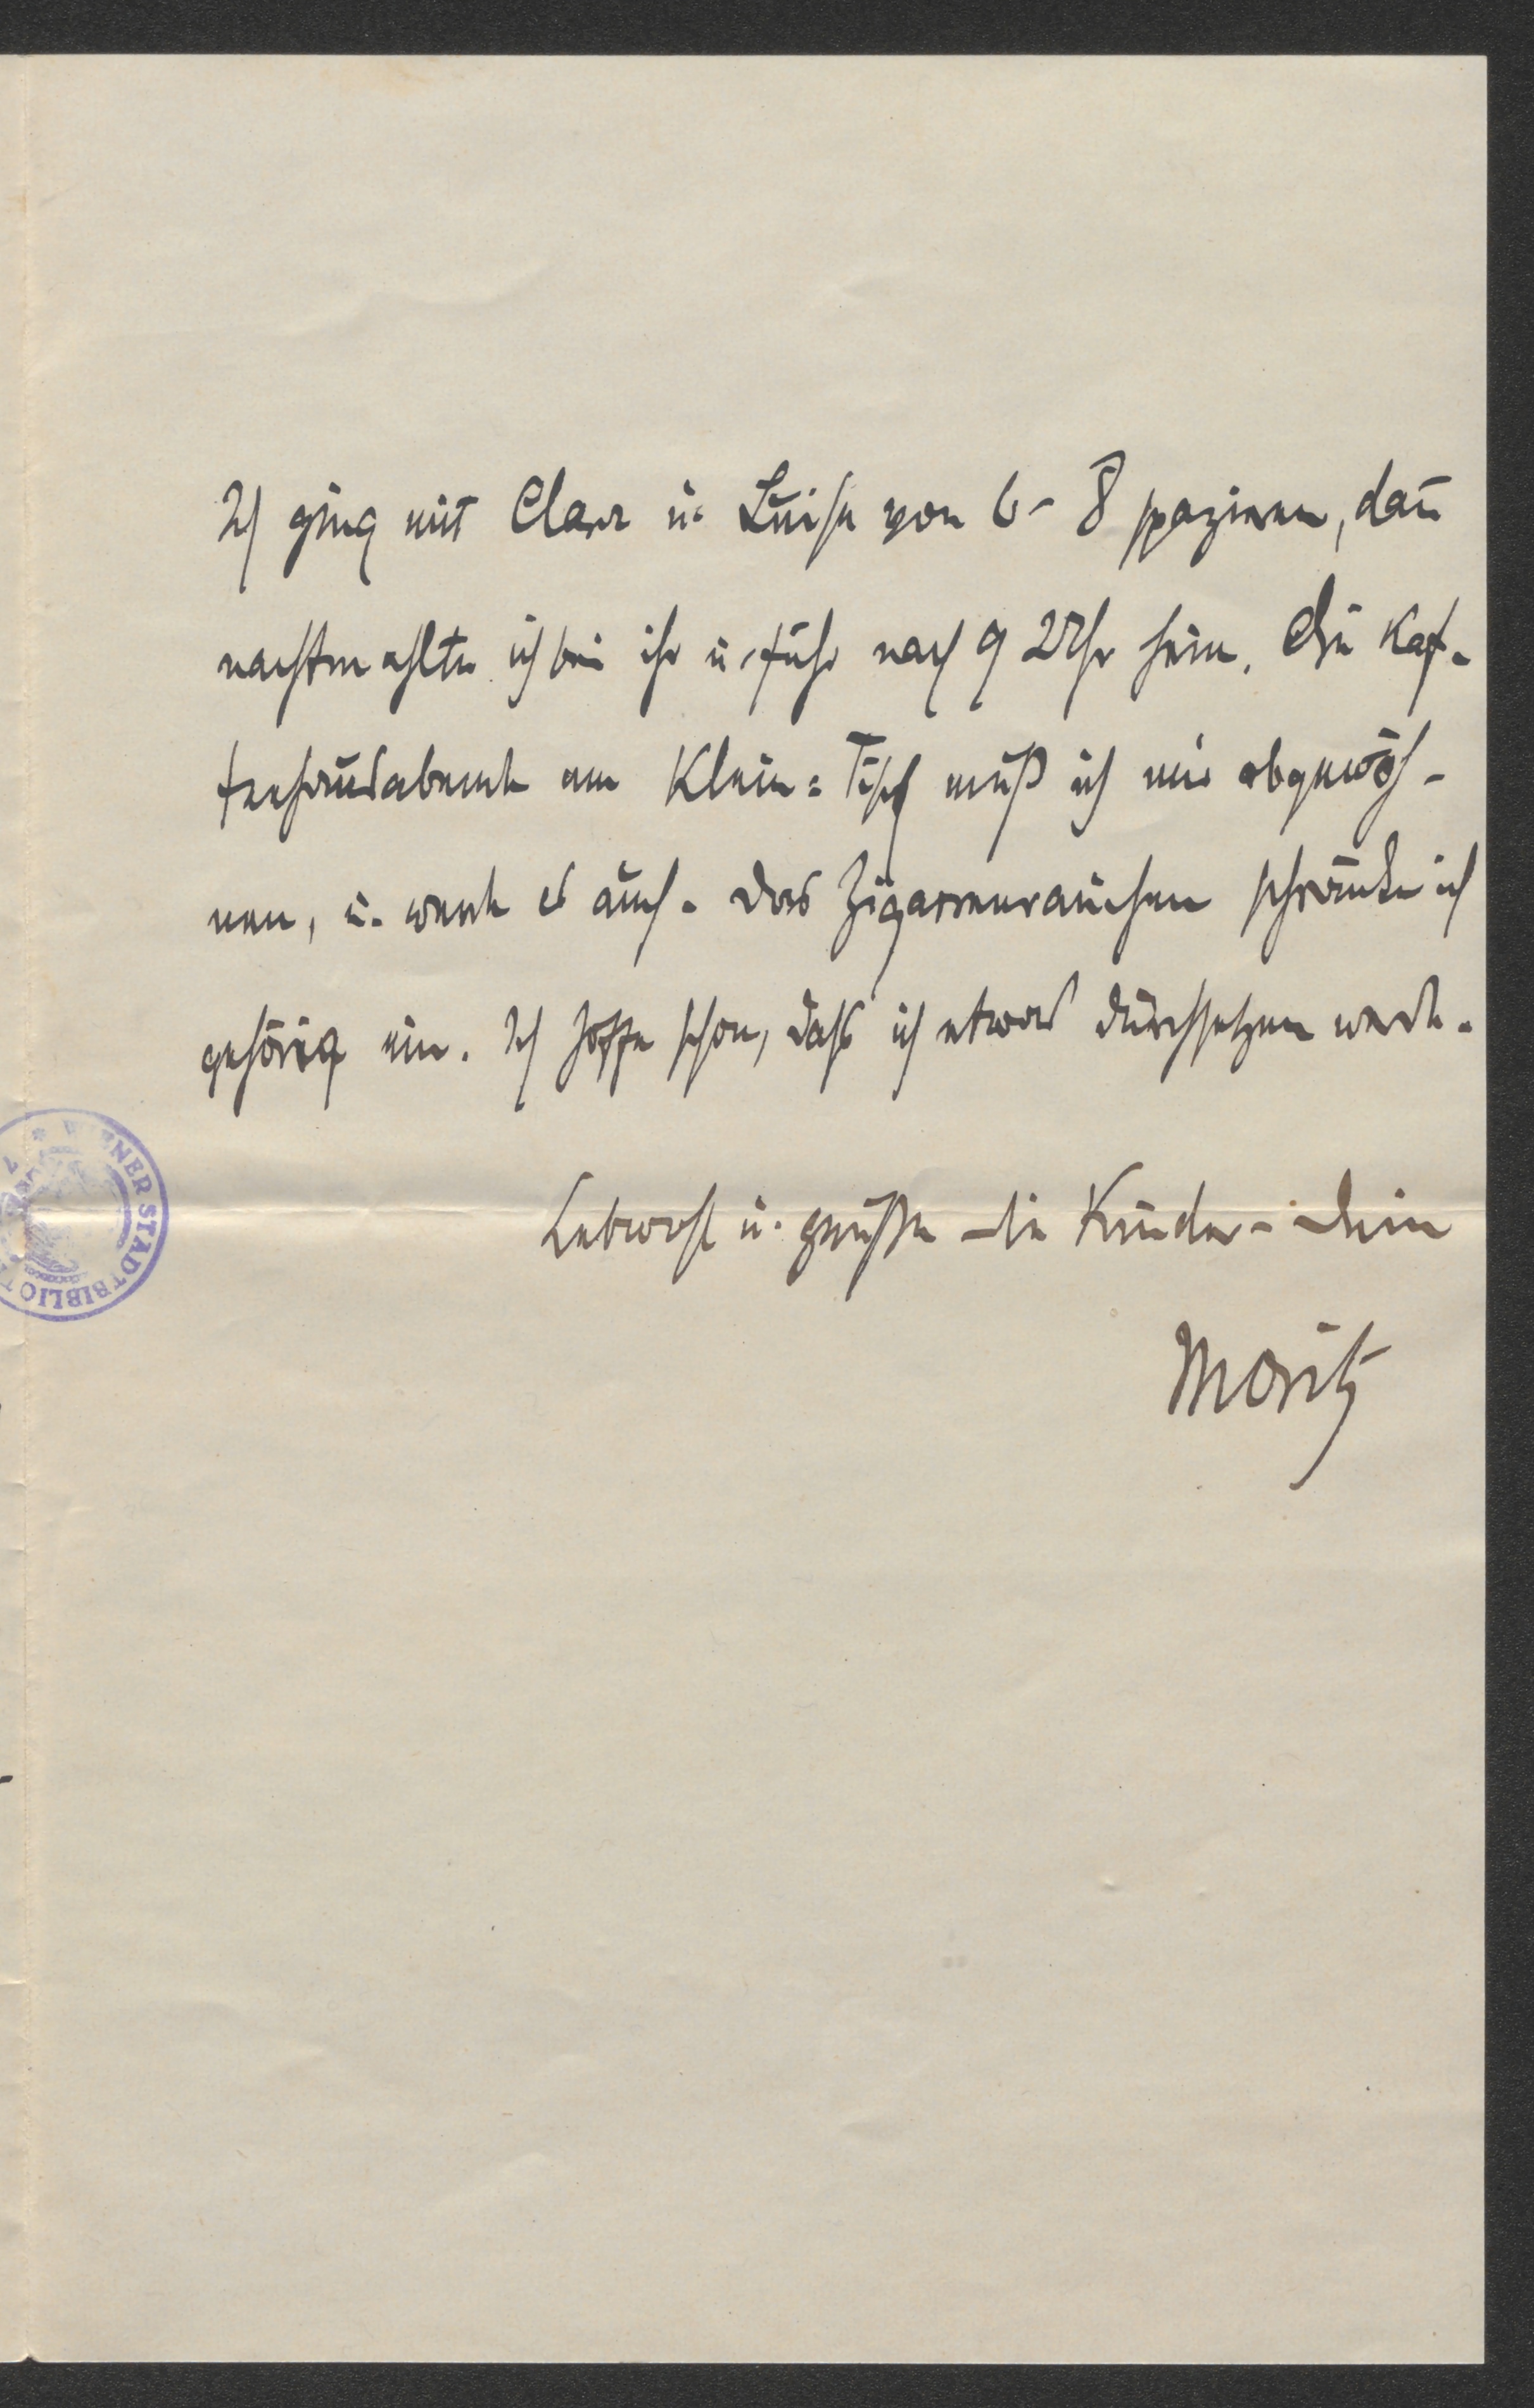 Ich ging mit Clara u. Luise von 6 - 8 spazieren, dan̄
nachtmahlte ich bei ihr u. fuhr nach 9 Uhr heim. Die Kaf-
feehausabende am Klein=Tisch muß ich mir abgewöh-
nen, u. werde es auch. Das Zigarrenrauchen schränke ich
gehörig ein. Ich hoffe schon, dass ich etwas durchsetzen werde.
Lebwohl u. grüsse die Kinder - Dein
Moritz
WIENER STADTBIBLIOT